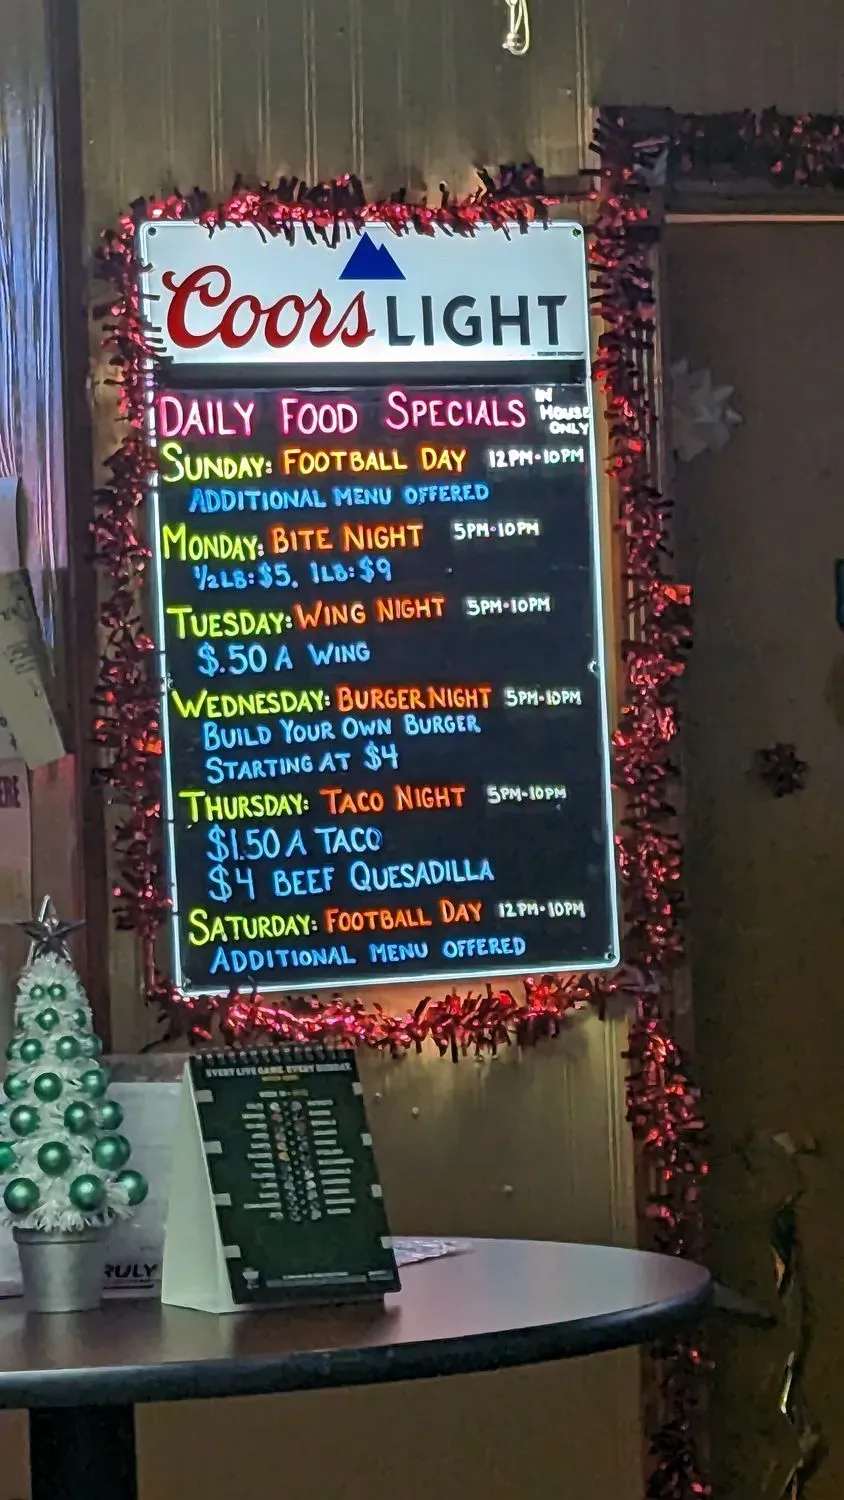 Coors LIGHT
DAILY FOOD SPECIALS
IN
HOUSE
ONLY
SUNDAY: FOOTBALL DAY 12PM-10PM
ADDITIONAL MENU OFFERED
MONDAY: BITE NIGHT 5PM-10PM
1/2LB: $5, 1LB: $9
TUESDAY: WING NIGHT 5PM-10PM
$.50 A WING
WEDNESDAY: BURGER NIGHT 5PM-10PM
BUILD YOUR OWN BURGER
STARTING AT $4
THURSDAY: TACO NIGHT 5PM-10PM
$1.50 A TACO
$4 BEEF QUESADILLA
SATURDAY: FOOTBALL DAY 12PM-10PM
ADDITIONAL MENU OFFERED
EVERY LIVE GAME. EVERY SUNDAY.
RULY